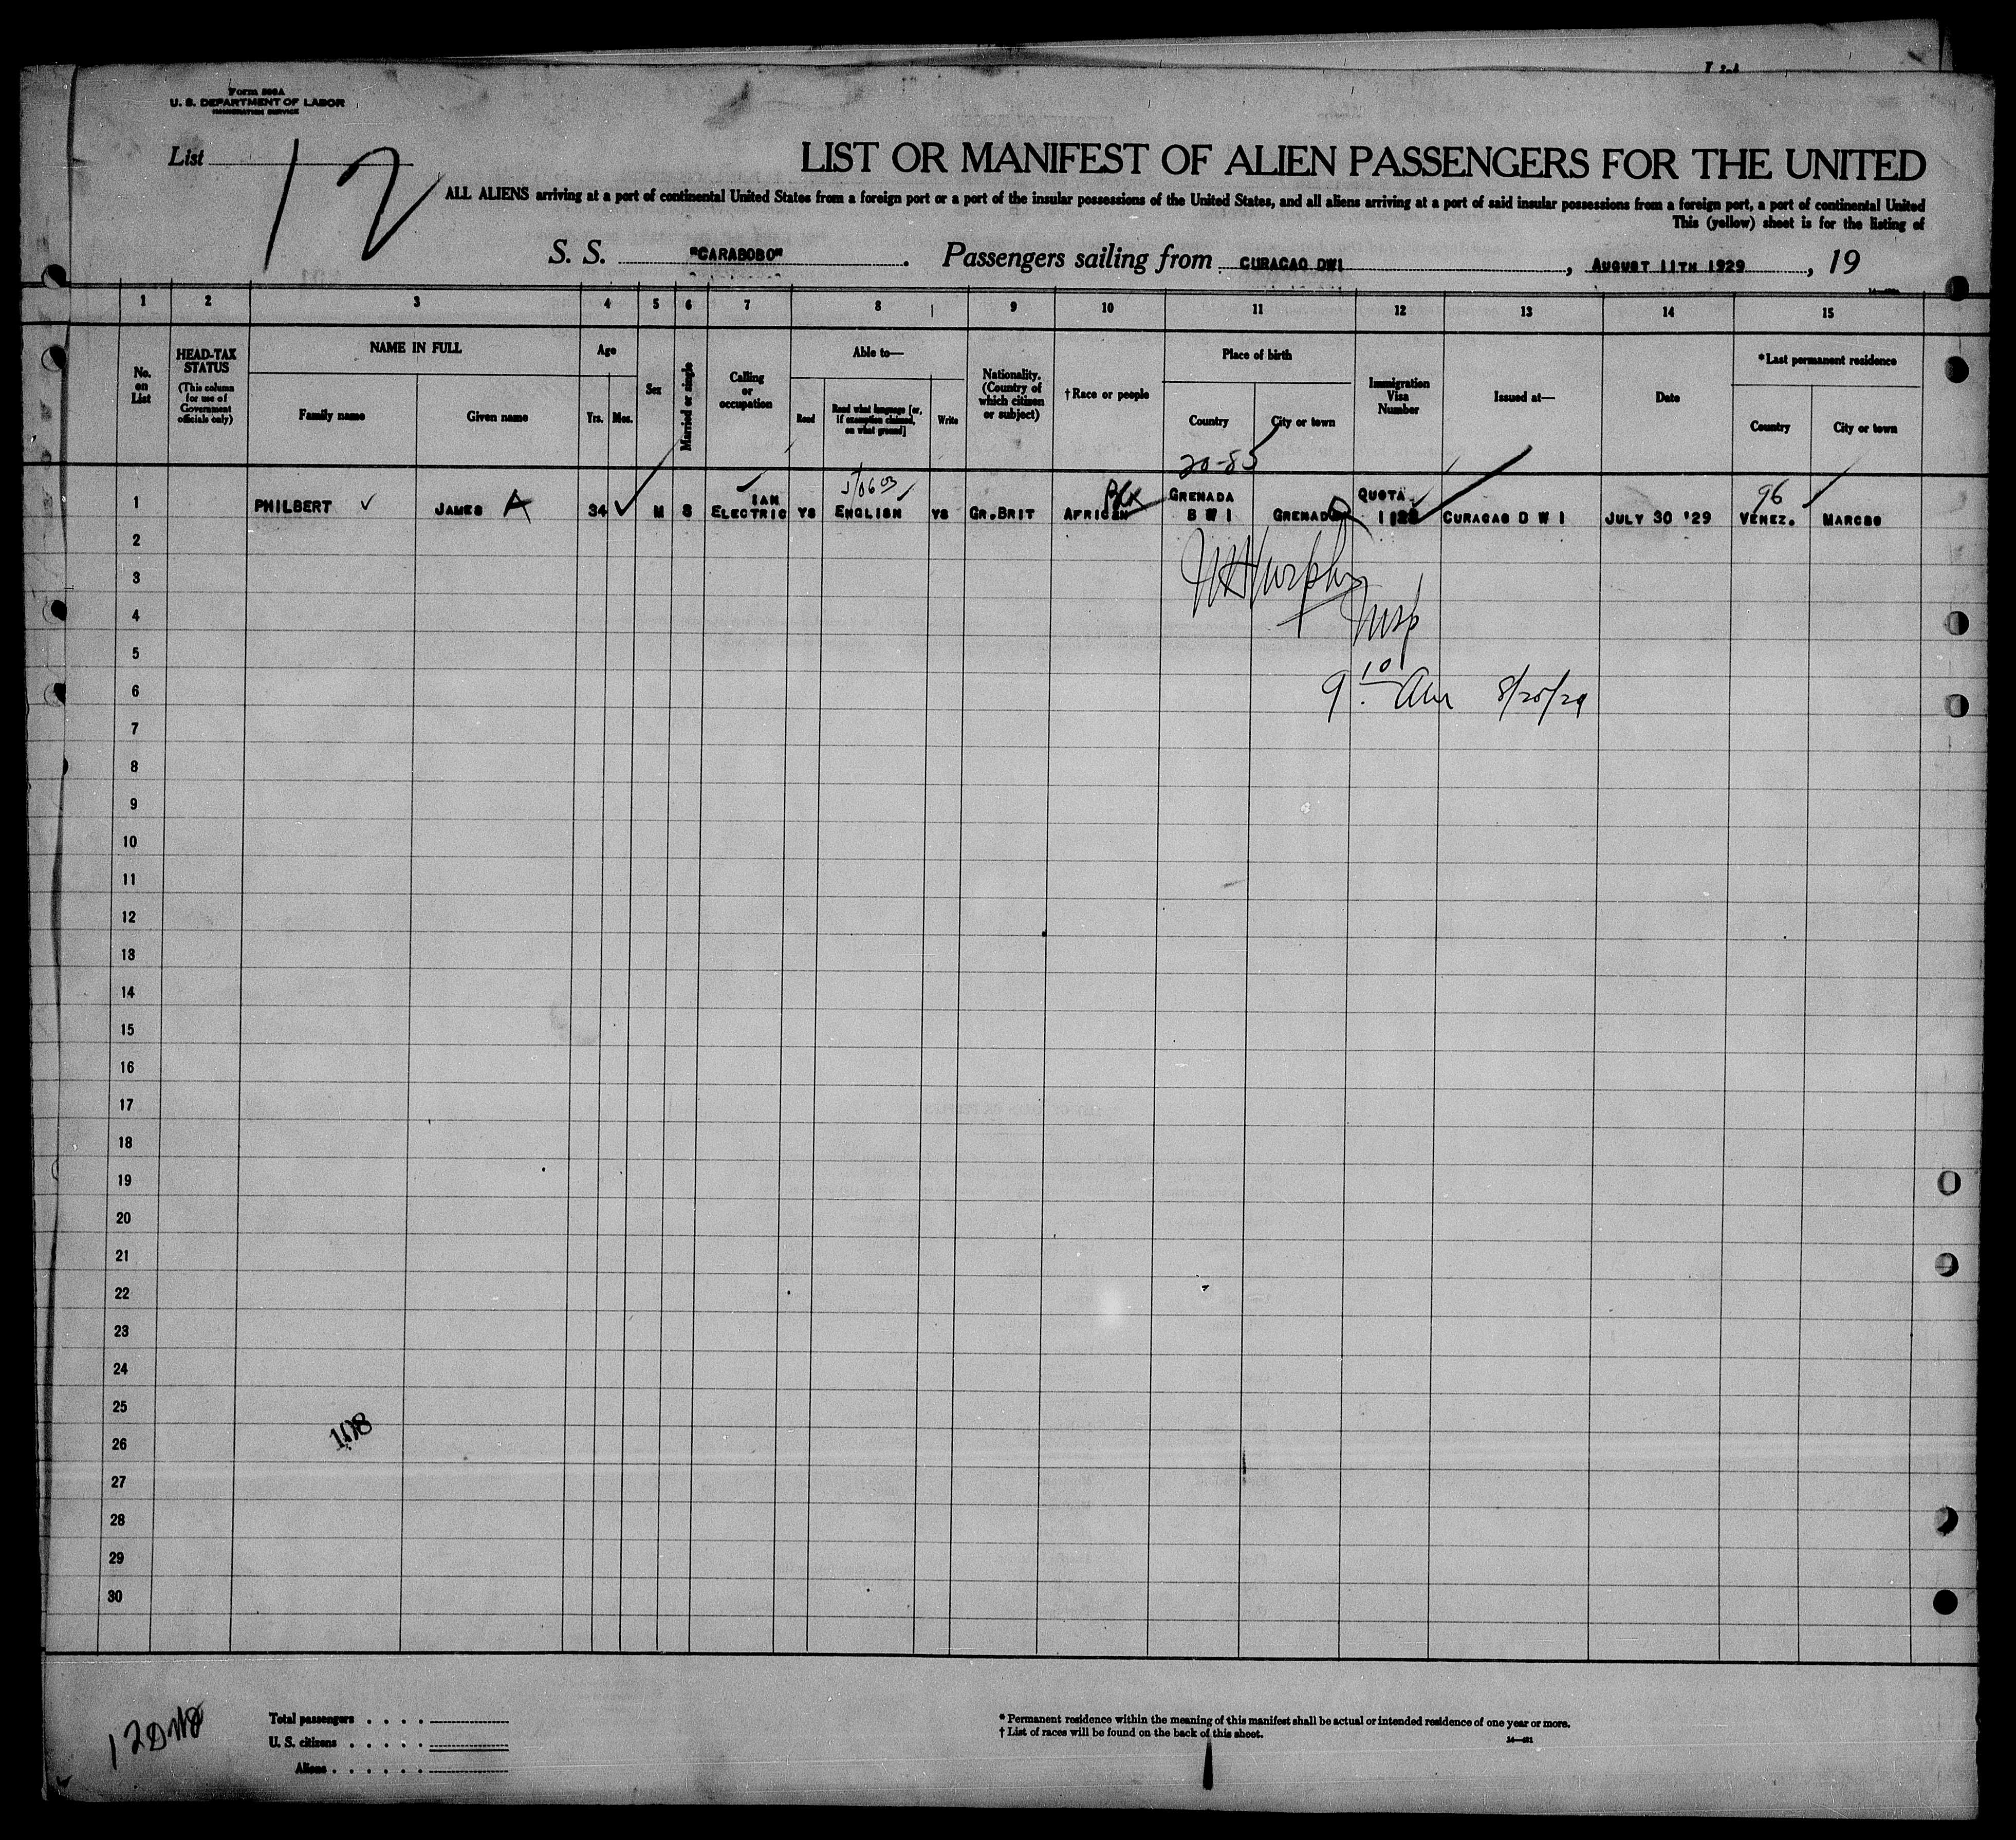 Form 500A
U. S. DEPARTMENT OF LABOR
IMMIGRATION SERVICE
List 12
LIST OR MANIFEST OF ALIEN PASSENGERS FOR THE UNITED
ALL ALIENS arriving at a port of continental United States from a foreign port or a port of the insular possessions of the United States, and all aliens arriving at a port of said insular possessions from a foreign port, a port of continental United
This (yellow) sheet is for the listing of
S. S. "CARABOBO" . Passengers sailing from CURACAO DWI , AUGUST 11TH 1929 , 19
1 2 3 4 5 6 7 8 9 10 11 12 13 14 15
No. on List
HEAD-TAX STATUS (This column for use of Government officials only)
NAME IN FULL
Family name Given name
Age
Yrs. Mos.
Sex
Married or single
Calling or occupation
Able to—
Read Read what language [or, if exemption claimed, on what ground] Write
Nationality. (Country of which citizen or subject)
†Race or people
Place of birth
Country City or town
Immigration Visa Number
Issued at—
Date
*Last permanent residence
Country City or town
20-85
1 PHILBERT JAMES A 34 M S ELECTRICIAN YS ENGLISH YS GR.BRIT AFRICAN Blk GRENADA B W I GRENADA QUOTA CURACAO D W I JULY 30 '29 96 VENEZ. MARCBO
2
3
4 Insp
5
6 9 10 Am 8/20/29
7
8
9
10
11
12
13
14
15
16
17
18
19
20
21
22
23
24
25
26 108
27
28
29
30
Total passengers . . . .
U. S. citizens . . . . .
Aliens . . . . . .
* Permanent residence within the meaning of this manifest shall be actual or intended residence of one year or more.
† List of races will be found on the back of this sheet.